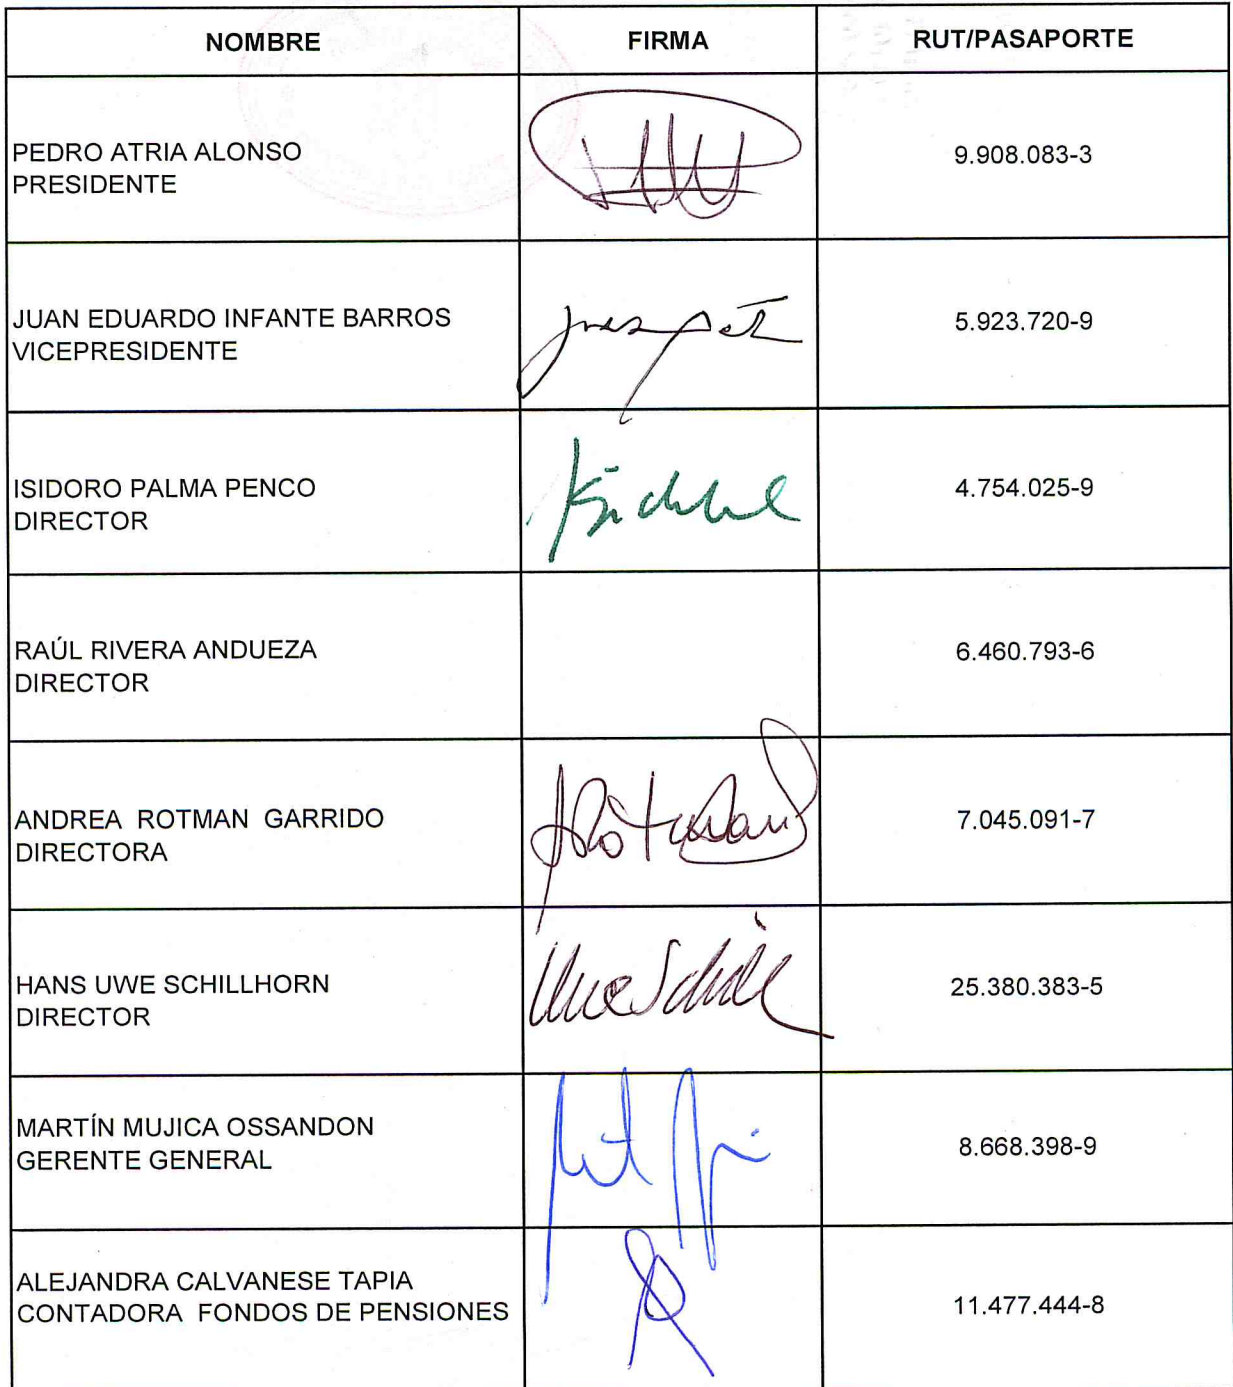 NOMBRE FIRMA RUT/PASAPORTE
PEDRO ATRIA ALONSO
PRESIDENTE
9.908.083-3
JUAN EDUARDO INFANTE BARROS
VICEPRESIDENTE
5.923.720-9
ISIDORO PALMA PENCO
DIRECTOR
4.754.025-9
RAÚL RIVERA ANDUEZA
DIRECTOR
6.460.793-6
ANDREA ROTMAN GARRIDO
DIRECTORA
7.045.091-7
HANS UWE SCHILLHORN
DIRECTOR
25.380.383-5
MARTÍN MUJICA OSSANDON
GERENTE GENERAL
8.668.398-9
ALEJANDRA CALVANESE TAPIA
CONTADORA FONDOS DE PENSIONES
11.477.444-8